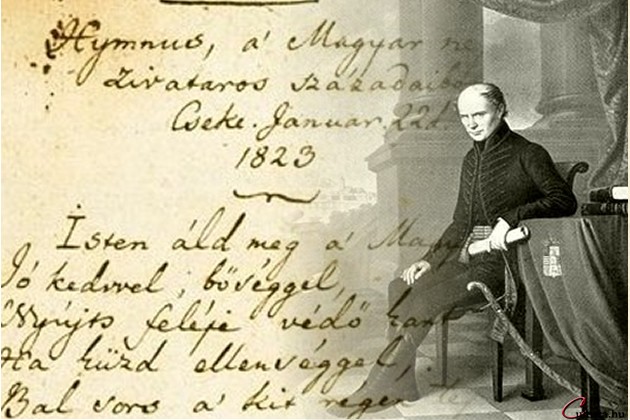 Hymnus, a' Magyar ne
zivataros századaib
Cseke. Januar. 22d.
1823
Isten áld meg a' Magy
Jó kedvvel, bőséggel,
Nyújts feléje védő kart
Ha küzd ellenséggel,
Bal sors a' kit régen